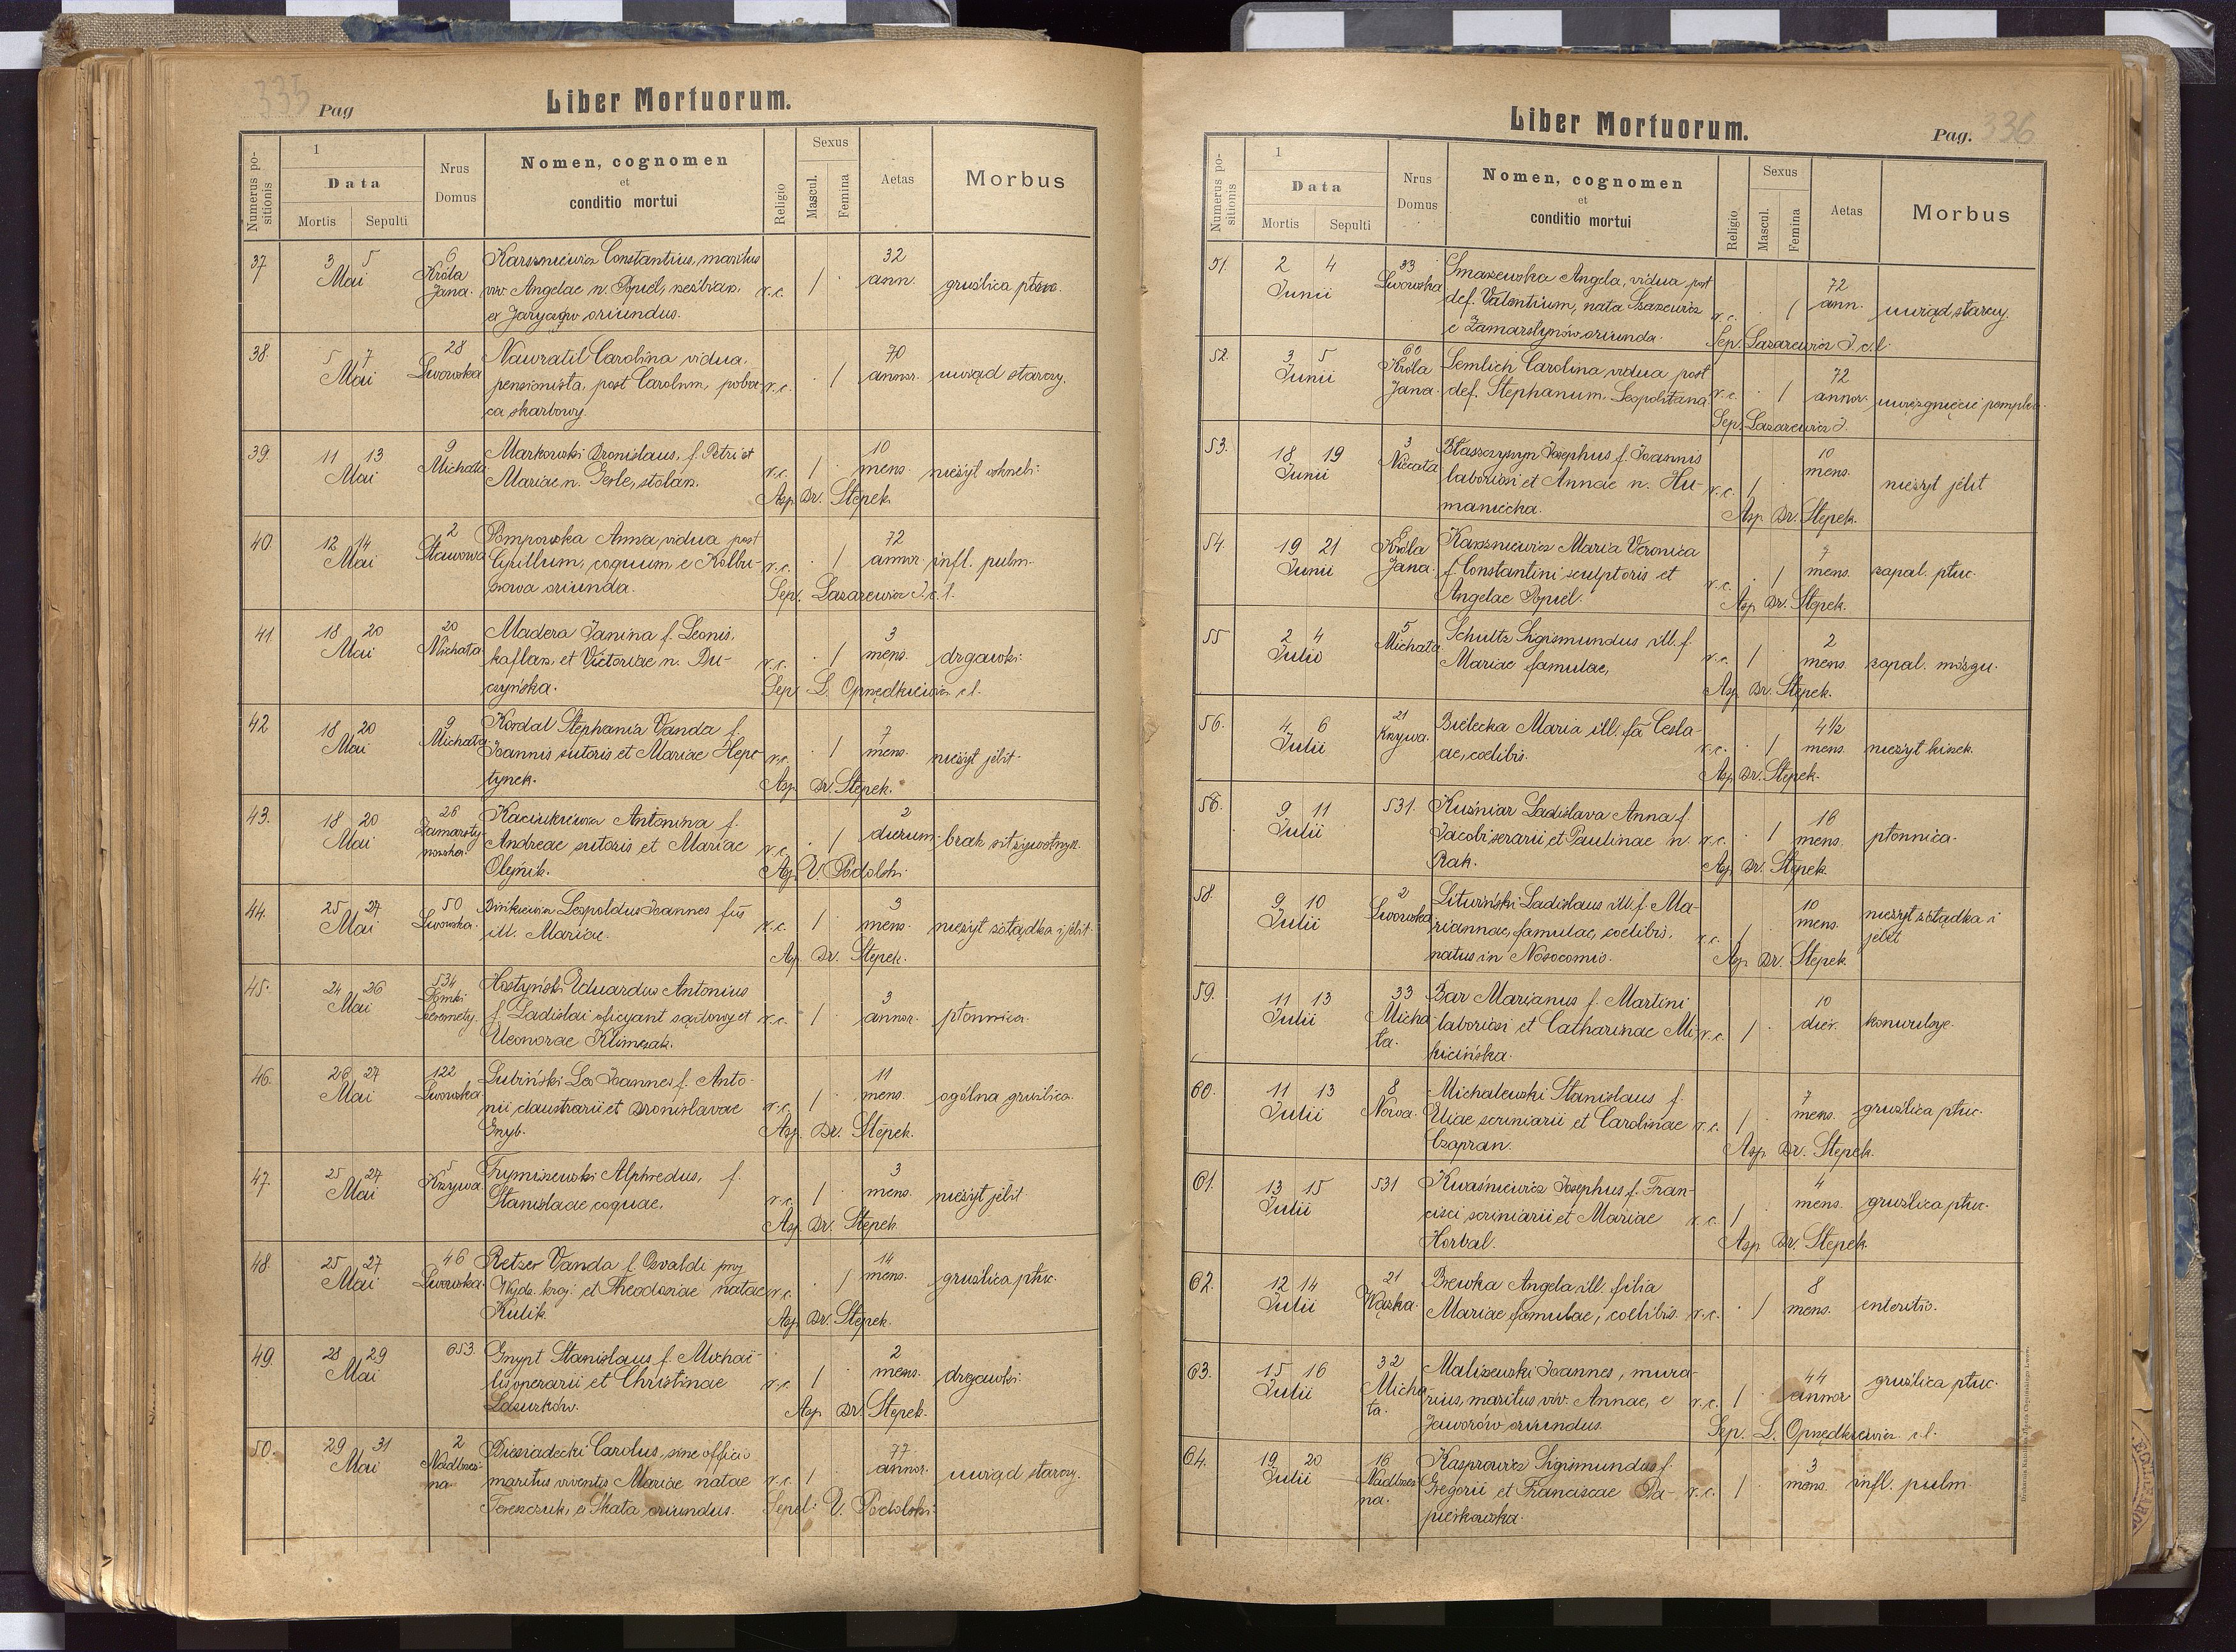 335
Pag
Liber Mortuorum.
Numerus positionis
1
Data
Mortis Sepulti
Nrus Domus
Nomen, cognomen
et
conditio mortui
Religio
Sexus
Mascul. Femina
Aetas
Morbus
37. 3 5 6 Karszniewicz Constantius, maritus 32
Mai Króla Jana. viv. Angelae n. Popiel, r.c. 1 · ann. gruźlica
ex oriundus.
38. 5 7 28 Nawratil Carolina vidua, 70
Mai Lwowska pensionista, post Carolum, r.c. · 1 annor. uwiąd starczy.
skarbowy.
39. 11 13 9 Markowski Bronislaus, f. Petri et 10
Mai Michała Mariae n. Gerle, stolarz. r.c. 1 mens. nieżyt oskrzeli.
Asp. Dr. Stepek.
40. 12 14 2 Pompowska Anna, vidua post 72
Mai Stawowa Cyrillum, coquum e Kolbu- r.c. · 1 annor. infl. pulm.
szowa oriunda. Sep. Lazarewicz J. c. l.
41. 18 20 20 Madera Janina f. Leonis, 3
Mai Michała kaflarz, et Victoriae n. Bu- r.c. · 1 mens. drgawki.
czyńska. Sep. L. Opnędkiewicz c l.
42 18 20 9 Kordal Stephania Vanda f. 7
Mai Michała Joannis sutoris et Mariae Hepe r.c. · 1 mens. nieżyt jelit.
tynek. Asp. Dr. Stepek.
43. 18 20 26 Antonina f. 2
Mai Zamarsty- Andreae sutoris et Mariae r.c. · 1 dierum brak sił żywotnych.
nowska. Olejnik. Asp. V. Podolski.
44. 25 27 50 Leopoldus Joannes fus 3
Mai Lwowska. ill. Mariae. r.c. 1 mens. nieżyt żołądka i jelit.
Asp. Dr. Stepek.
45. 24 26 534 Hostyński Eduardus Antonius 3
Mai f. Ladislai oficyant sądowy et r.c. 1 · annor. płonnica.
Eleonorae Klimczak.
46. 26 27 122 Lubiński Leo Joannes f. Anto- 11
Mai Lwowska nii claustrarii et Bronislavae r.c. 1 · mens. ogólna gruźlica.
Gnyb. Asp. Dr. Stepek.
47. 25 27 5 Trymiszewski Alphredus, f. 3
Mai Krzywa. Stanislaae coquae. r.c. 1 mens. nieżyt jelit
Asp. Dr. Stepek.
48. 25 27 46 Retzer Vanda f. Osvaldi pny 14
Mai Lwowska. Wydz. kraj. et Theodosiae natae r.c. · 1 mens. gruźlica płuc.
Kulik. Asp. Dr. Stepek.
49. 28 29 653. Gnypt Stanislaus f. Michaë- 2
Mai lis operarii et Christinae r.c. 1 · mens. drgawki.
Lazurków. Asp. Dr. Stepek.
50. 29 31 2 Biesiadecki Carolus, sine officio 77
Mai Nadbrzeż- maritus viventis Mariae natae r.c. 1 · annor. uwiąd starczy.
na Tereszczuk, ex Skala oriundus. Sepel: V. Podolski.
Liber Mortuorum.
Pag. 336
Numerus positionis
1
Data
Mortis Sepulti
Nrus Domus
Nomen, cognomen
et
conditio mortui
Religio
Sexus
Mascul. Femina
Aetas
Morbus
51. 2 4 33 Smaszewska Angela, vidua post 72
Junii Lwowska def. Valentium, nata r.c. · 1 ann. uwiąd starczy.
e Zamarstynów oriunda. Sep. Lazarewicz J. c. l.
52. 3 5 60 Semlich Carolina vidua post 72
Junii Króla Jana. def. Stephanum, Leopolitana r.c. · 1 annor.
Sep. Lazarewicz J.
53. 18 19 3 Błaszczyszyn Josephus f. Joannis 10
Junii Niecała laboriosi et Annae n. Hu- r.c. 1 mens. nieżyt jelit
maniecha. Asp. Dr. Stepek.
54. 19 21 6 Karszniewicz Maria Veronica 7
Junii Króla Jana. f. Constantini sculptoris et r.c. · 1 mens. zapal. płuc.
Angelae Popiel. Asp. Dr. Stepek.
55 2 4 5 Schultz Sigismundus ill. f. 2
Julii Michała Mariae famulae, r.c. 1 mens. zapal. mózgu.
Asp. Dr. Stepek.
56. 4 6 21 Bielecka Maria ill. fa Cesla- 4½
Julii Krzywa. ae, coelibis. r.c. · 1 mens. nieżyt kiszek.
Asp. Dr. Stepek.
56. 9 11 531. Kuźniar Ladislava Anna f. 16
Julii Jacobi serarii et Paulinae n. r.c. · 1 mens. płonnica.
Rak. Asp. Dr. Stepek.
58. 9 10 2 Litwiński Ladislaus ill. f. Ma- 10
Julii Lwowska riannae, famulae, coelibis, r.c. 1 mens. nieżyt żołądka i
natus in Nosocomio. jelit
Asp. Dr. Stepek
59. 11 13 33 Bar Marianus f. Martini 10
Julii Micha- laboriosi et Catharinae Mi- r.c. 1 · dier. konwulsye.
ła. kicińska.
60. 11 13 8 Michalewski Stanislaus f. 7
Julii Nowa. Eliae scriniarii et Carolinae r.c. 1 · mens. gruźlica płuc.
Czapran. Asp. Dr. Stepek.
61. 13 15 531 Kwaśniewicz Josephus f. Fran- 4
Julii cisci scriniarii et Mariae r.c. 1 mens. gruźlica płuc.
Horbal. Asp. Dr. Stepek.
62. 12 14 21 Brewka Angela ill. filia 8
Julii Wązka. Mariae famulae, coelibis. r.c. · 1 mens. enteritis.
63. 15 16 32 Maliszewski Joannes, mura- 44
Julii Micha- rius, maritus viv. Annae, e r.c. 1 annor gruźlica płuc.
ła. Jaworów oriundus. Sep. L. Opnędkiewicz c l.
64. 19 20 16 Kasprowicz Sigismundus f. 3
Julii Nadbrzeż- Gregorii et Franciscae Pa- r.c. 1 · mens. infl. pulm.
na. pierkowska.